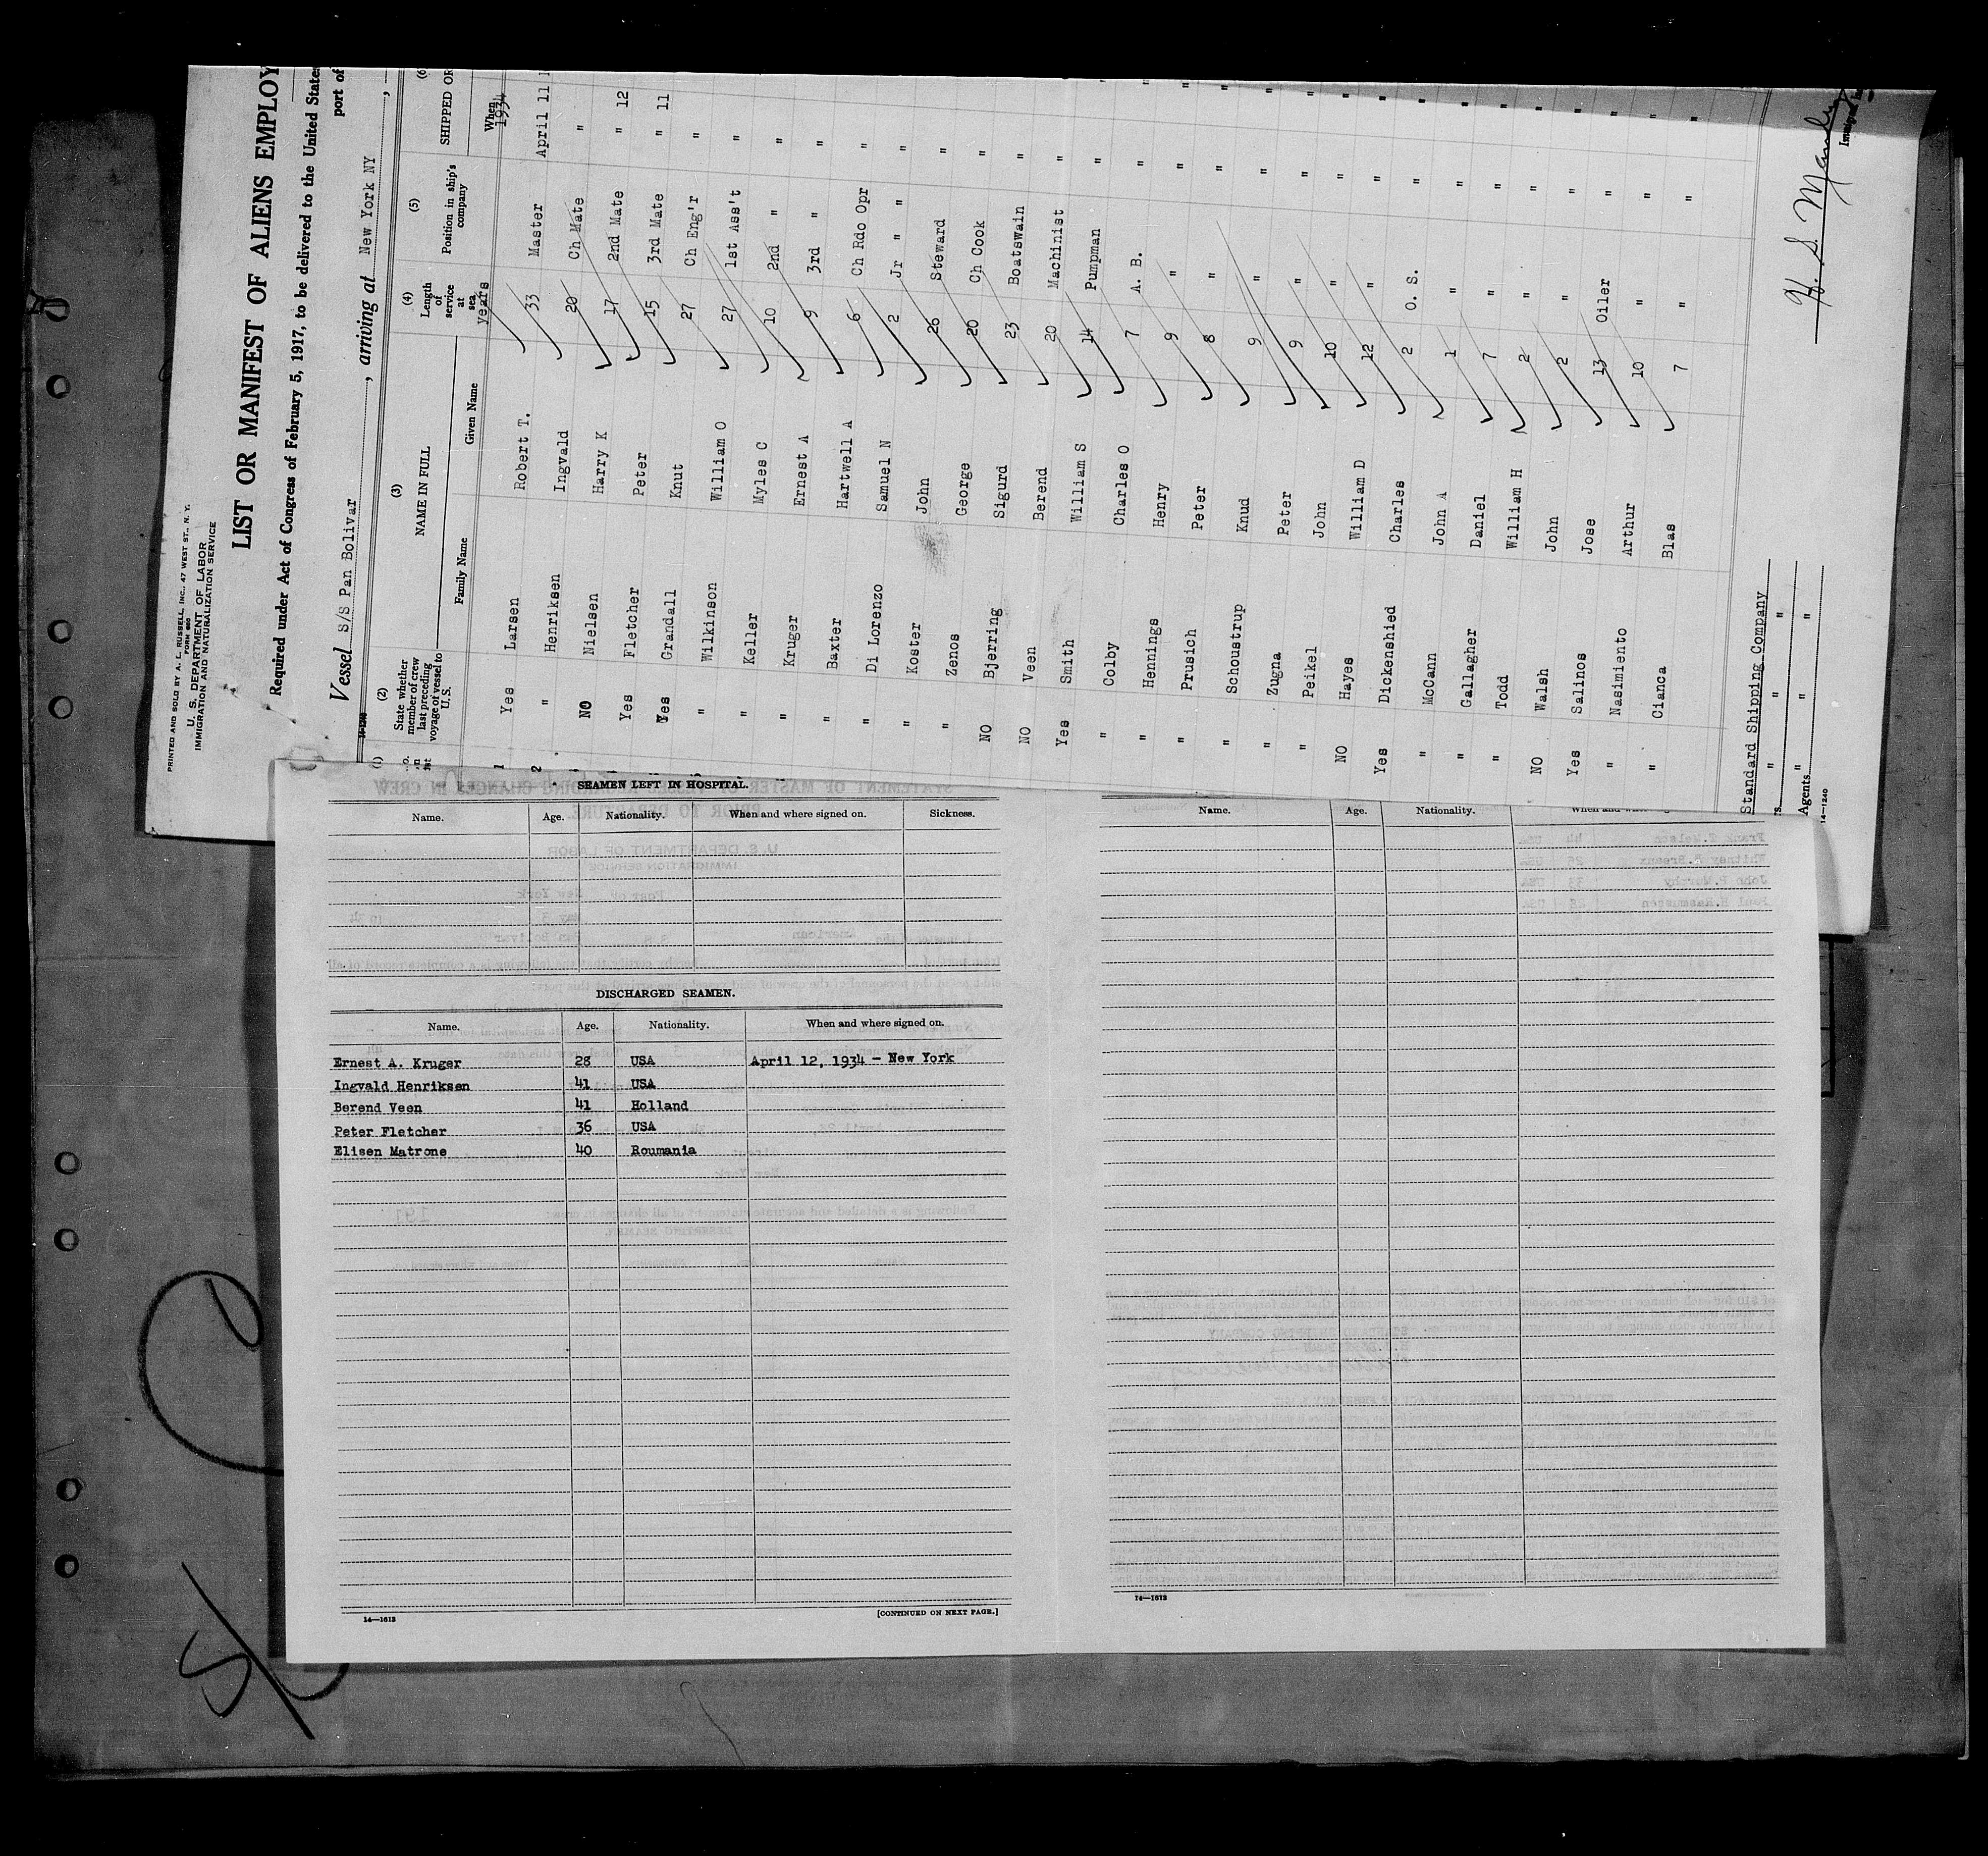 PRINTED AND SOLD BY A. L. RUSSELL, INC., 47 WEST ST., N. Y.
FORM 680
U. S. DEPARTMENT OF LABOR
IMMIGRATION AND NATURALIZATION SERVICE
LIST OR MANIFEST OF ALIENS EMPLOY
Required under Act of Congress of February 5, 1917, to be delivered to the United State
Vessel S/S Pan Bolivar, arriving at New York NY, port of
(1) (2) (3) (4) (5) (6
State whether member of crew last preceding voyage of vessel to U. S. NAME IN FULL Length of service at sea Position in ship's company SHIPPED OR
Family Name Given Name years When 1934
1 Yes Larsen Robert T. 33 Master April 11 1
2 " Henriksen Ingvald 20 Ch Mate "
NO Nielsen Harry K 17 2nd Mate " 12
Yes Fletcher Peter 15 3rd Mate " 11
Yes Grandall Knut 27 Ch Eng'r "
" Wilkinson William O 27 1st Ass't "
" Keller Myles C 10 2nd " "
" Kruger Ernest A 9 3rd " "
" Baxter Hartwell A 6 Ch Rdo Opr "
" Di Lorenzo Samuel N 2 Jr " " "
" Koster John 26 Steward "
" Zenos George 20 Ch Cook "
NO Bjerring Sigurd 23 Boatswain "
NO Veen Berend 20 Machinist "
Yes Smith William S 14 Pumpman "
" Colby Charles O 7 A. B. "
" Hennings Henry 9 " "
" Prusich Peter 8 " "
" Schoustrup Knud 9 " "
" Zugna Peter 9 " "
" Peikel John 10 " "
NO Hayes William D 12 " "
Yes Dickenshied Charles 2 O. S. "
" McCann John A 1 " "
" Gallagher Daniel 7 " "
" Todd William H 2 " "
NO Walsh John 2 " "
Yes Salinos Jose 13 Oiler "
" Nasimiento Arthur 10 " "
" Cianca Blas 7 " "
Standard Shipping Company
" " "
Agents " " "
14—1240
SEAMEN LEFT IN HOSPITAL.
Name. Age. Nationality. When and where signed on. Sickness.
DISCHARGED SEAMEN.
Name. Age. Nationality. When and where signed on.
Ernest A. Kruger 28 USA April 12, 1934 - New York
Ingvald Henriksen 41 USA
Berend Veen 41 Holland
Peter Fletcher 36 USA
Elisen Matrone 40 Roumania
14—1613
[CONTINUED ON NEXT PAGE.]
Name. Age. Nationality.
14—1613